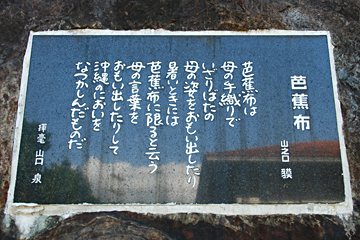 芭蕉布
山之口 貘
芭蕉布は
母の手織りで
いざりばたの
母の姿をおもい出したり
暑いときには
芭蕉布に限ると云う
母の言葉を
おもい出したりして
沖縄のにおいを
なつかしんだものだ
揮毫 山口 泉